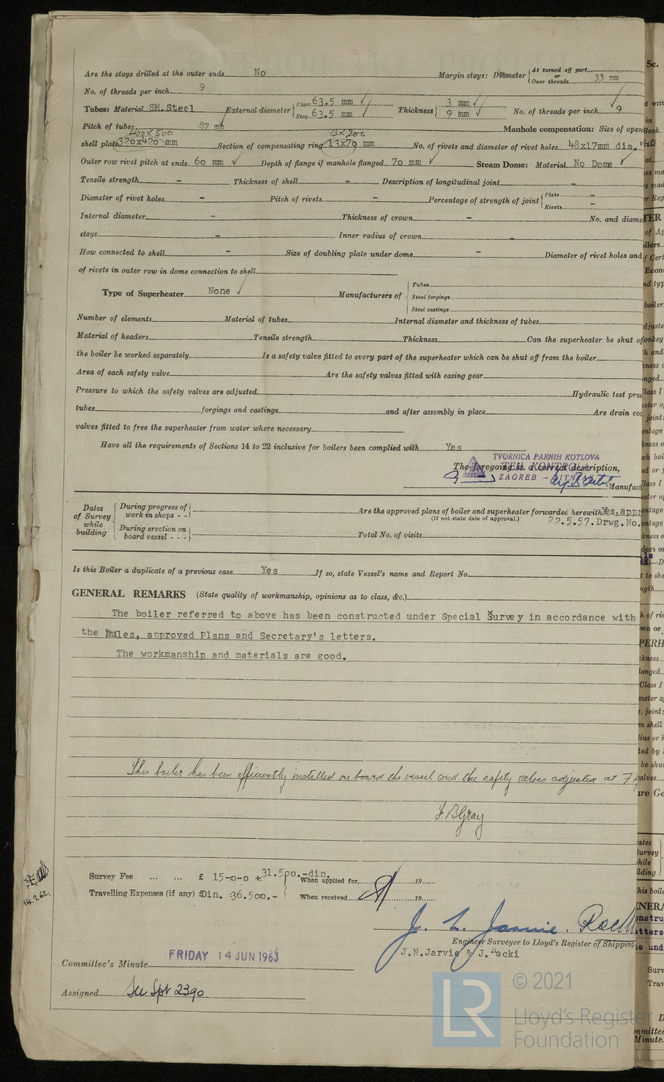 Are the stays drilled at the outer ends No Margin stays: Diameter { At turned off part or Over threads 33 mm
No. of threads per inch 9
Tubes: Material SM.Steel External diameter { Plain 63.5 mm Stay 63.5 mm Thickness { 3 mm 9 mm No. of threads per inch 9
Pitch of tubes 87 mm Manhole compensation: Size of open
shell plate 320x420 mm Section of compensating ring 13x70 mm No. of rivets and diameter of rivet holes 48x17mm dia.
Outer row rivet pitch at ends 60 mm Depth of flange if manhole flanged 70 mm Steam Dome: Material No Dome
Tensile strength - Thickness of shell - Description of longitudinal joint -
Diameter of rivet holes - Pitch of rivets - Percentage of strength of joint { Plate - Rivets -
Internal diameter - Thickness of crown - No. and diame
stays - Inner radius of crown -
How connected to shell - Size of doubling plate under dome - Diameter of rivet holes and
of rivets in outer row in dome connection to shell
Type of Superheater None Manufacturers of { Tubes Steel forgings Steel castings
Number of elements Material of tubes Internal diameter and thickness of tubes
Material of headers Tensile strength Thickness Can the superheater be shut of
the boiler be worked separately Is a safety valve fitted to every part of the superheater which can be shut off from the boiler
Area of each safety valve Are the safety valves fitted with easing gear
Pressure to which the safety valves are adjusted Hydraulic test pre
tubes forgings and castings and after assembly in place Are drain co
valves fitted to free the superheater from water where necessary
Have all the requirements of Sections 14 to 22 inclusive for boilers been complied with Yes
TVORNICA PARNIH KOTLOVA
The foregoing is a correct description,
TEH. KONTROLA
ZAGREB
Manufac
Dates of Survey while building { During progress of work in shops - - During erection on board vessel - - -
Are the approved plans of boiler and superheater forwarded herewith Yes, appr
(If not state date of approval.) 22.5.57.Drwg.No.
Total No. of visits
Is this Boiler a duplicate of a previous case Yes If so, state Vessel's name and Report No.
GENERAL REMARKS (State quality of workmanship, opinions as to class, &c.)
The boiler referred to above has been constructed under Special Survey in accordance with
the Rules, approved Plans and Secretary's letters.
The workmanship and materials are good.
This boiler has been efficiently installed on board the vessel and the safety valves adjusted at 7
J B Gray
Survey Fee ... ... £ 15-0-0 + 31.500.-din. When applied for 19
Travelling Expenses (if any) £ Din. 36.500.- When received 19
J. N. Jarvie.
Engineer Surveyor to Lloyd's Register of Shipping
J.N.Jarvis & J.
Committee's Minute FRIDAY 14 JUN 1963
Assigned See Spt 2390
LR
© 2021
Lloyd's Register
Foundation